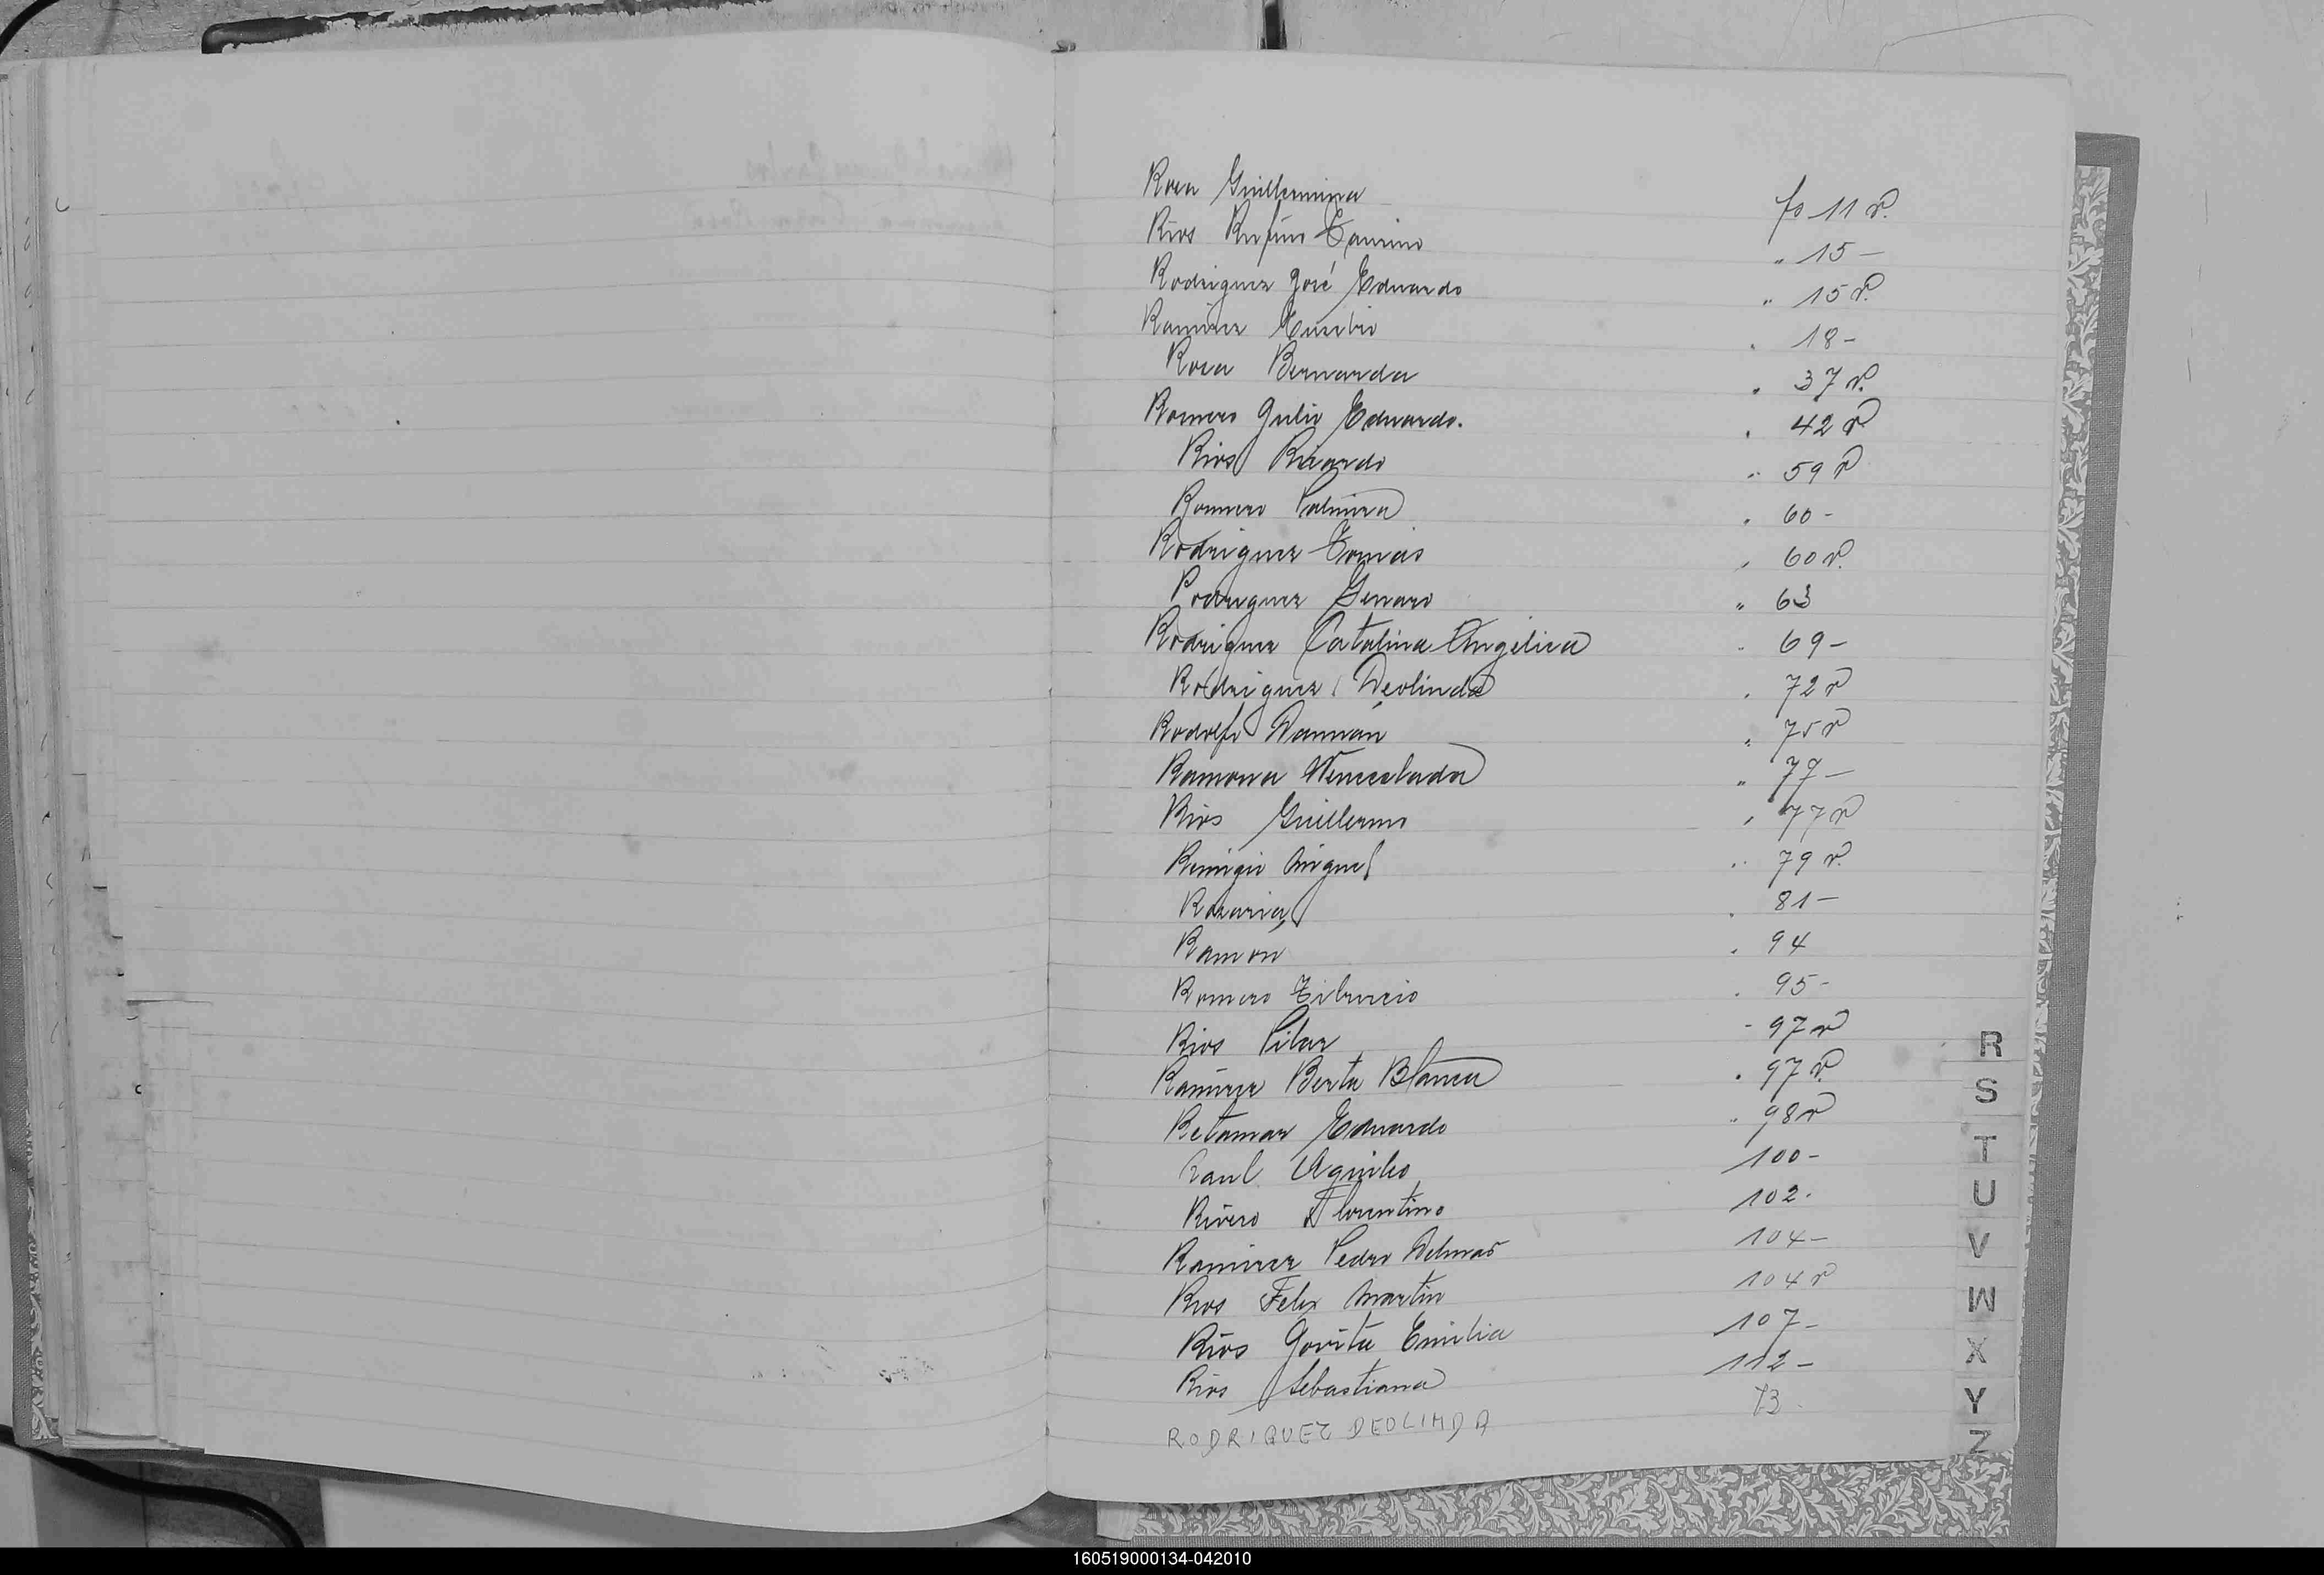 Rosa Guillermina fo 11 v.
Rios Rufino Camino " 15 -
Rodriguez José Eduardo " 15 v.
Ramirez Eusebio " 18 -
Rosa Bernarda " 37 v.
Romero Julio Eduardo. " 42 v
Rios Ricardo " 59 v
Romero Palmira " 60 -
Rodriguez Tomás " 60 v.
Rodriguez Genaro " 63
Rodriguez Catalina Angélica " 69 -
Rodriguez Deolinda " 72 v
Rodolfo Damián " 75 v
Ramona Wenceslada " 77 -
Rios Guillermo " 77 v
Remigio Miguel " 79 v.
Rosaria " 81 -
Ramón " 94
Romero Tiburcio " 95 -
Rios Pilar " 97 v
Ramirez Berta Blanca " 97 v.
Retamar Eduardo " 98 v
Raul 100 -
Rivero Florentino 102.
Ramirez Pedro Delmas 104 -
Rios Felix Martin 104 v
Rios Jovita Emilia 107 -
Rios Sebastiana 112 -
RODRIGUEZ DEOLINDA 73.
R
S
T
U
V
W
X
Y
Z
160519000134-042010